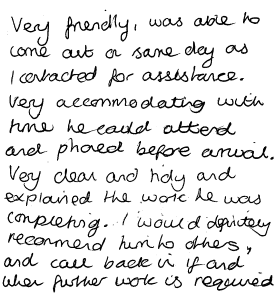 Very friendly, was able to
come out on same day as
I contacted for assistance.
Very accommodating with
time he could attend
and phoned before arrival.
Very clean and tidy and
explained the work he was
completing. I would definitely
recommend him to others,
and call back in if and
when further work is required